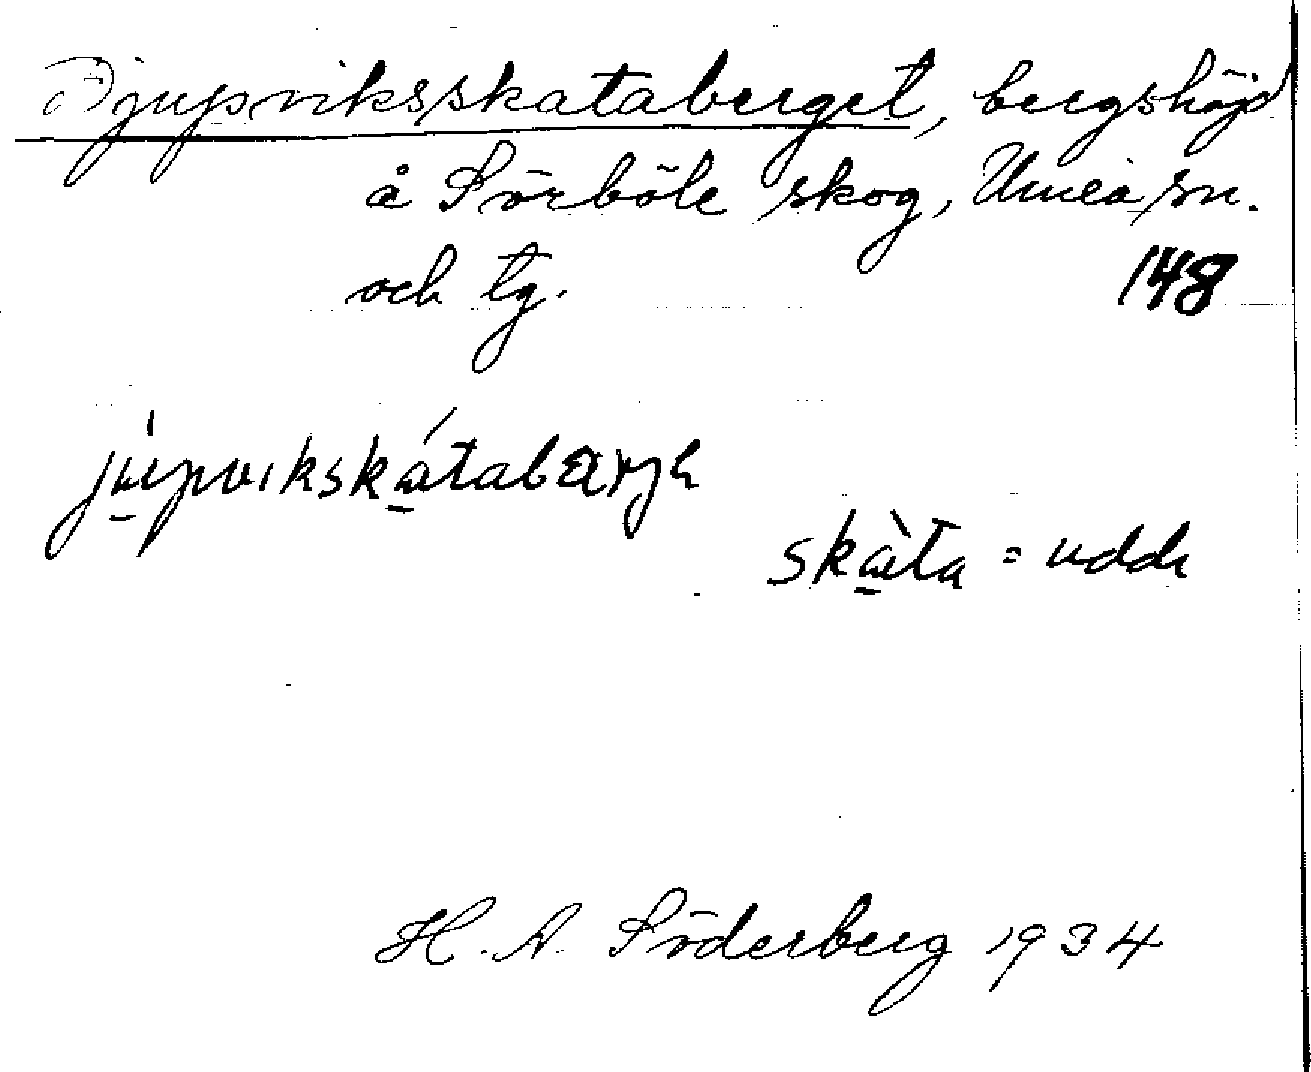 Djupviksskataberget, bergshöjd
å Sörböle skog, Umeå sn.
och tg.
148
jupvikskátabærjɛ
skàta = udde
H. A. Söderberg 1934